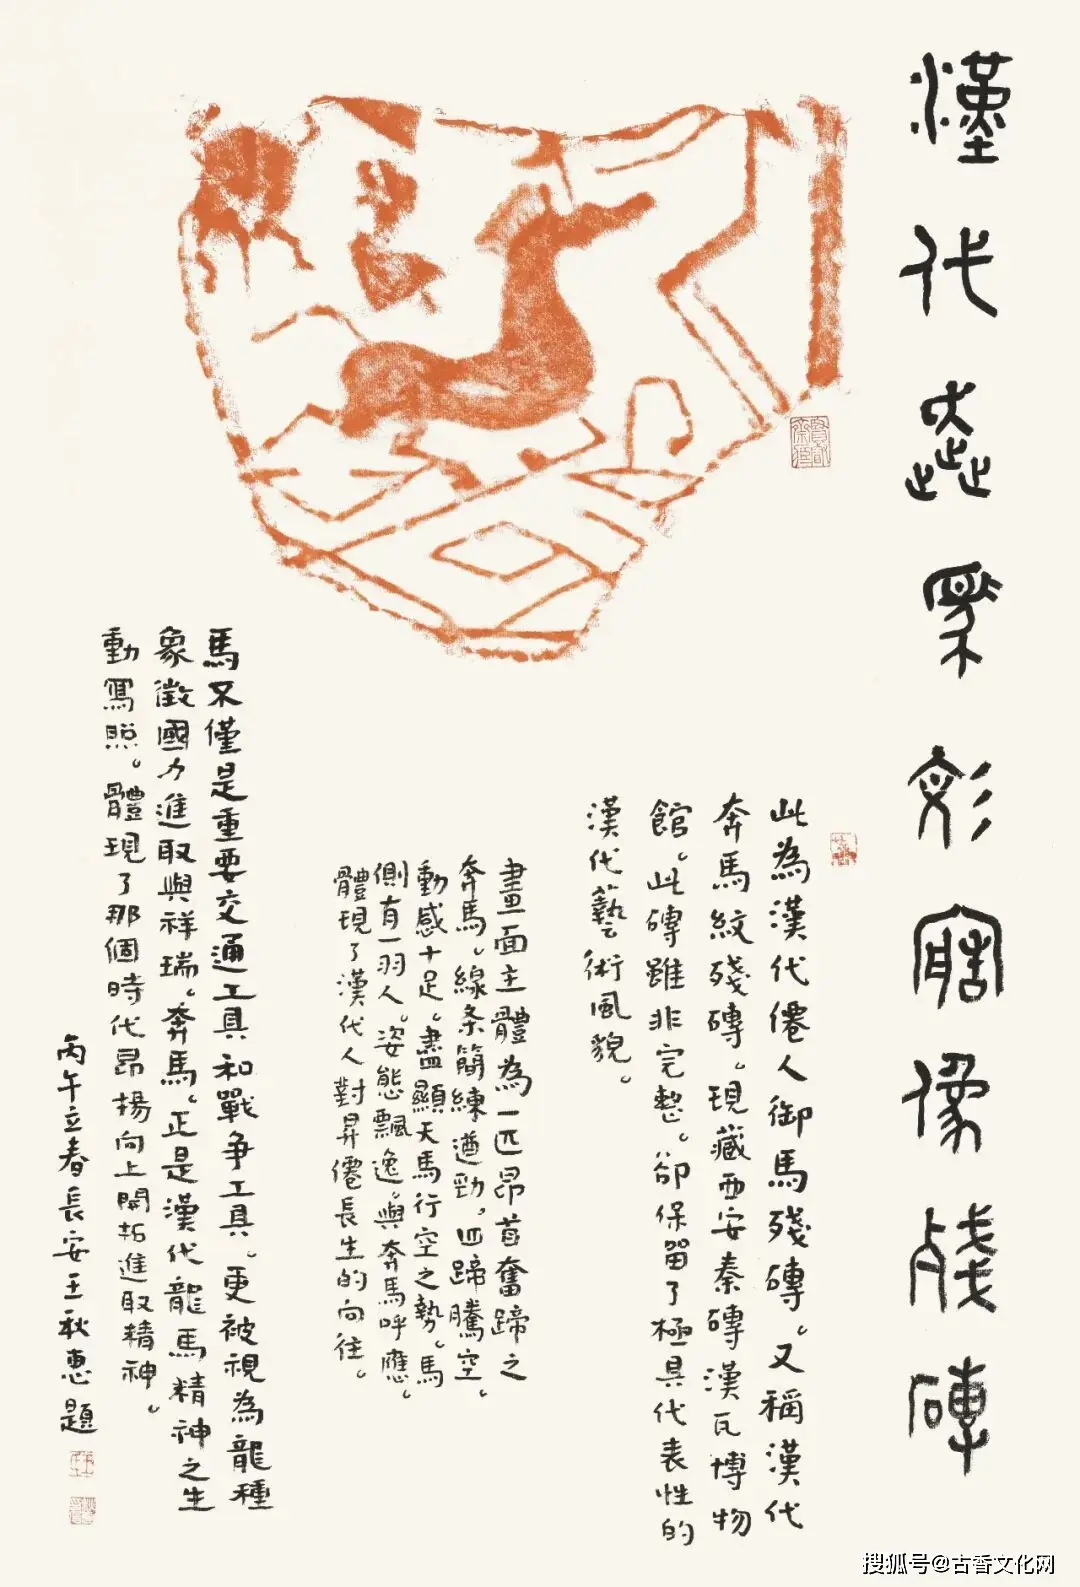 漢代奔馬彣像殘磚
此為漢代僊人御馬殘磚。又稱漢代
奔馬紋殘磚。現藏西安秦磚漢瓦博物
館。此磚雖非完整。卻保留了極具代表性的
漢代藝術風貌。
畫面主體為一匹昂首奮蹄之
奔馬。線条簡練遒勁。四蹄騰空。
動感十足。盡顯天馬行空之勢。馬
側有一羽人。姿態飄逸。與奔馬呼應。
體現了漢代人對昇僊長生的向往。
馬不僅是重要交通工具和戰争工具。更被視為龍種
象徵國力進取與祥瑞。奔馬。正是漢代龍馬精神之生
動寫照。體現了那個時代昂揚向上開拓進取精神。
丙午立春長安王秋惠題
搜狐号@古香文化网